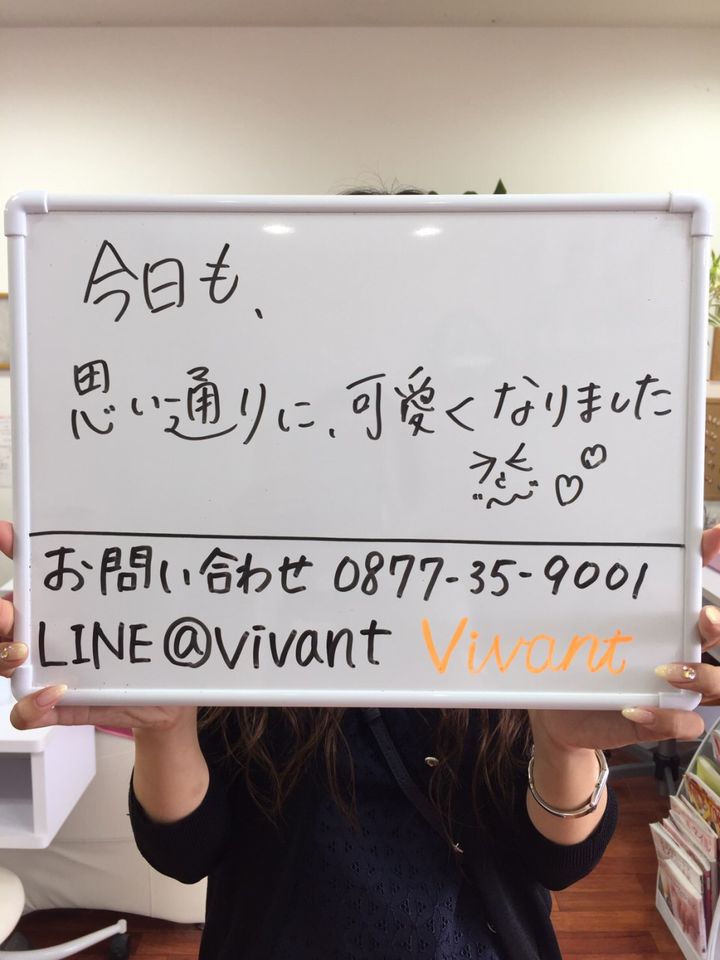 今日も、
思い通りに、可愛くなりました
お問い合わせ 0877-35-9001
LINE@vivant Vivant